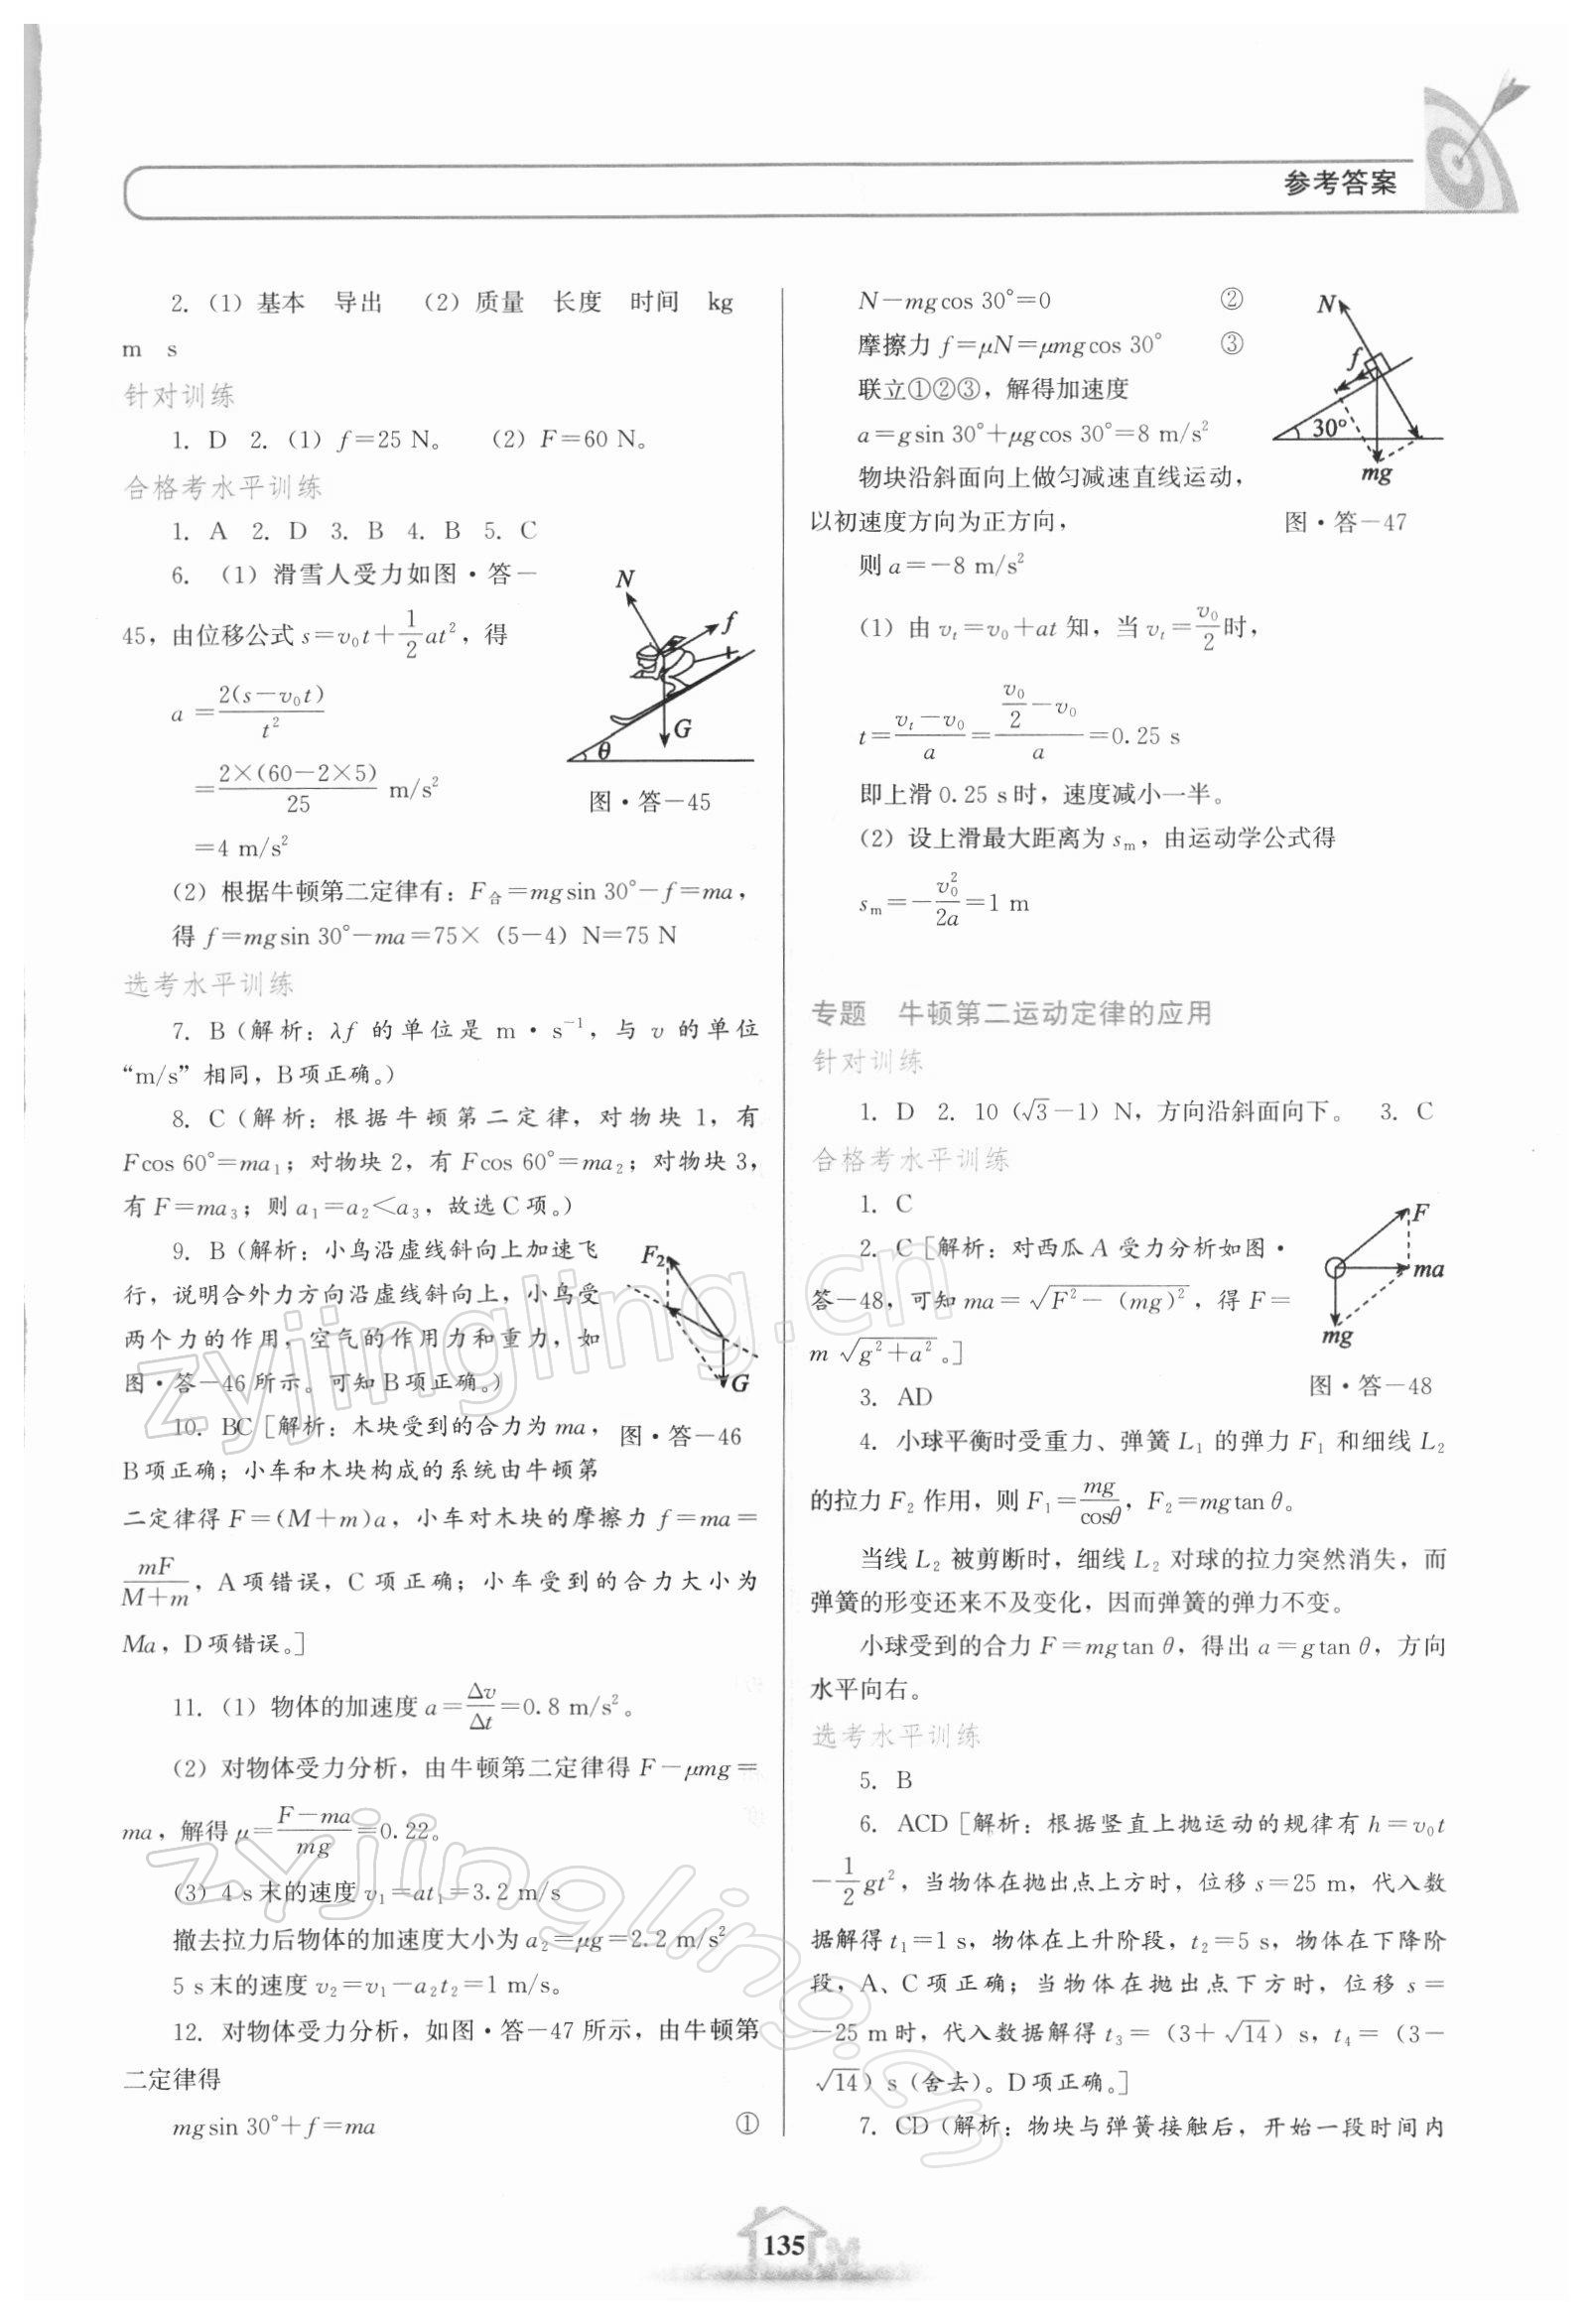 参考答案
2. (1) 基本 导出 (2) 质量 长度 时间 kg
m s
针对训练
1. D 2. (1) f=25 N。 (2) F=60 N。
合格考水平训练
1. A 2. D 3. B 4. B 5. C
6. (1) 滑雪人受力如图·答-
45，由位移公式 s=v₀t+\frac{1}{2}at²，得
a =\frac{2(s-v₀t)}{t²}
=\frac{2×(60-2×5)}{25} m/s²
=4 m/s²
N
f
G
θ
图·答-45
(2) 根据牛顿第二定律有：F合=mgsin 30°-f=ma，
得 f=mgsin 30°-ma=75×（5-4）N=75 N
选考水平训练
7. B (解析：λf 的单位是 m·s⁻¹，与 v 的单位
“m/s”相同，B项正确。)
8. C (解析：根据牛顿第二定律，对物块 1，有
Fcos 60°=ma₁；对物块 2，有 Fcos 60°=ma₂；对物块 3，
有 F=ma₃；则 a₁=a₂<a₃，故选 C 项。)
9. B (解析：小鸟沿虚线斜向上加速飞
行，说明合外力方向沿虚线斜向上，小鸟受
两个力的作用，空气的作用力和重力，如
图·答-46 所示。可知 B 项正确。)
F₂
G
图·答-46
10. BC [解析：木块受到的合力为 ma，
B 项正确；小车和木块构成的系统由牛顿第
二定律得 F=(M+m)a，小车对木块的摩擦力 f=ma=
\frac{mF}{M+m}，A 项错误，C 项正确；小车受到的合力大小为
Ma，D 项错误。]
11. (1) 物体的加速度 a=\frac{Δv}{Δt}=0.8 m/s²。
(2) 对物体受力分析，由牛顿第二定律得 F-μmg=
ma，解得 μ=\frac{F-ma}{mg}=0.22。
(3) 4 s 末的速度 v₁=at₁=3.2 m/s
撤去拉力后物体的加速度大小为 a₂=μg=2.2 m/s²
5 s 末的速度 v₂=v₁-a₂t₂=1 m/s。
12. 对物体受力分析，如图·答-47 所示，由牛顿第
二定律得
mgsin 30°+f=ma ①
N-mgcos 30°=0 ②
摩擦力 f=μN=μmgcos 30° ③
联立①②③，解得加速度
a=gsin 30°+μgcos 30°=8 m/s²
物块沿斜面向上做匀减速直线运动，
以初速度方向为正方向，
N
f
30°
mg
图·答-47
则 a=-8 m/s²
(1) 由 vₜ=v₀+at 知，当 vₜ=\frac{v₀}{2}时，
t=\frac{vₜ-v₀}{a}=\frac{\frac{v₀}{2}-v₀}{a}=0.25 s
即上滑 0.25 s 时，速度减小一半。
(2) 设上滑最大距离为 sₘ，由运动学公式得
sₘ=-\frac{v₀²}{2a}=1 m
专题 牛顿第二运动定律的应用
针对训练
1. D 2. 10（√3-1）N，方向沿斜面向下。 3. C
合格考水平训练
1. C
2. C [解析：对西瓜 A 受力分析如图·
答-48，可知 ma=√(F²-（mg）²)，得 F=
m √(g²+a²)。]
F
ma
mg
图·答-48
3. AD
4. 小球平衡时受重力、弹簧 L₁ 的弹力 F₁ 和细线 L₂
的拉力 F₂ 作用，则 F₁=\frac{mg}{cosθ}，F₂=mgtan θ。
当线 L₂ 被剪断时，细线 L₂ 对球的拉力突然消失，而
弹簧的形变还来不及变化，因而弹簧的弹力不变。
小球受到的合力 F=mgtan θ，得出 a=gtan θ，方向
水平向右。
选考水平训练
5. B
6. ACD [解析：根据竖直上抛运动的规律有 h=v₀t
-\frac{1}{2}gt²，当物体在抛出点上方时，位移 s=25 m，代入数
据解得 t₁=1 s，物体在上升阶段，t₂=5 s，物体在下降阶
段，A、C 项正确；当物体在抛出点下方时，位移 s=
-25 m 时，代入数据解得 t₃=（3+√14）s，t₄=（3-
√14）s（舍去）。D 项正确。]
7. CD (解析：物块与弹簧接触后，开始一段时间内
135
zyjingling.cn
zyjingling.cn